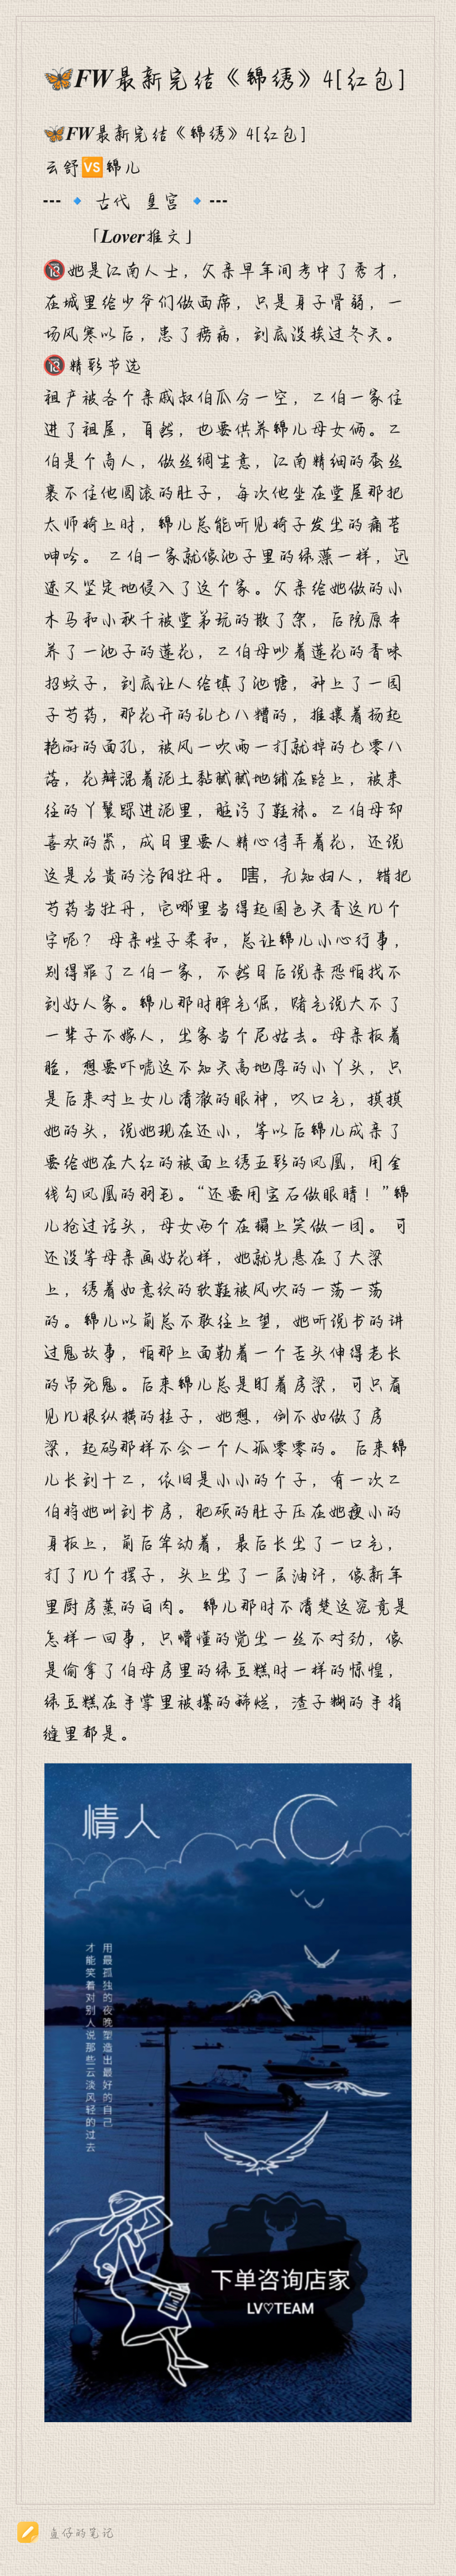 🦋FW最新完结《锦绣》4[红包]
🦋FW最新完结《锦绣》4[红包]
云舒🆚锦儿
--- 🔹 古代 皇宫 🔹---
「Lover推文」
🔞她是江南人士，父亲早年间考中了秀才，
在城里给少爷们做西席，只是身子骨弱，一
场风寒以后，患了痨病，到底没挨过冬天。
🔞精彩节选
祖产被各个亲戚叔伯瓜分一空，二伯一家住
进了祖屋，自然，也要供养锦儿母女俩。二
伯是个商人，做丝绸生意，江南精细的蚕丝
裹不住他圆滚的肚子，每次他坐在堂屋那把
太师椅上时，锦儿总能听见椅子发出的痛苦
呻吟。 二伯一家就像池子里的绿藻一样，迅
速又坚定地侵入了这个家。父亲给她做的小
木马和小秋千被堂弟玩的散了架，后院原本
养了一池子的莲花，二伯母吵着莲花的香味
招蚊子，到底让人给填了池塘，种上了一园
子芍药，那花开的乱七八糟的，推攘着扬起
艳丽的面孔，被风一吹雨一打就掉的七零八
落，花瓣混着泥土黏腻腻地铺在路上，被来
往的丫鬟踩进泥里，脏污了鞋袜。二伯母却
喜欢的紧，成日里要人精心侍弄着花，还说
这是名贵的洛阳牡丹。 嘻，无知妇人，错把
芍药当牡丹，它哪里当得起国色天香这几个
字呢？ 母亲性子柔和，总让锦儿小心行事，
别得罪了二伯一家，不然日后说亲恐怕找不
到好人家。锦儿那时脾气倔，赌气说大不了
一辈子不嫁人，出家当个尼姑去。母亲板着
脸，想要吓唬这不知天高地厚的小丫头，只
是后来对上女儿清澈的眼神，叹口气，摸摸
她的头，说她现在还小，等以后锦儿成亲了
要给她在大红的被面上绣五彩的凤凰，用金
线勾凤凰的羽毛。“还要用宝石做眼睛！”锦
儿抢过话头，母女两个在榻上笑做一团。 可
还没等母亲画好花样，她就先悬在了大梁
上，绣着如意纹的软鞋被风吹的一荡一荡
的。锦儿以前总不敢往上望，她听说书的讲
过鬼故事，怕那上面勒着一个舌头伸得老长
的吊死鬼。后来锦儿总是盯着房梁，可只看
见几根纵横的柱子，她想，倒不如做了房
梁，起码那样不会一个人孤零零的。
情人
用最孤独的夜晚塑造出最好的自己
才能笑着对别人说那些云淡风轻的过去
下单咨询店家
LV♡TEAM
鱼仔的笔记